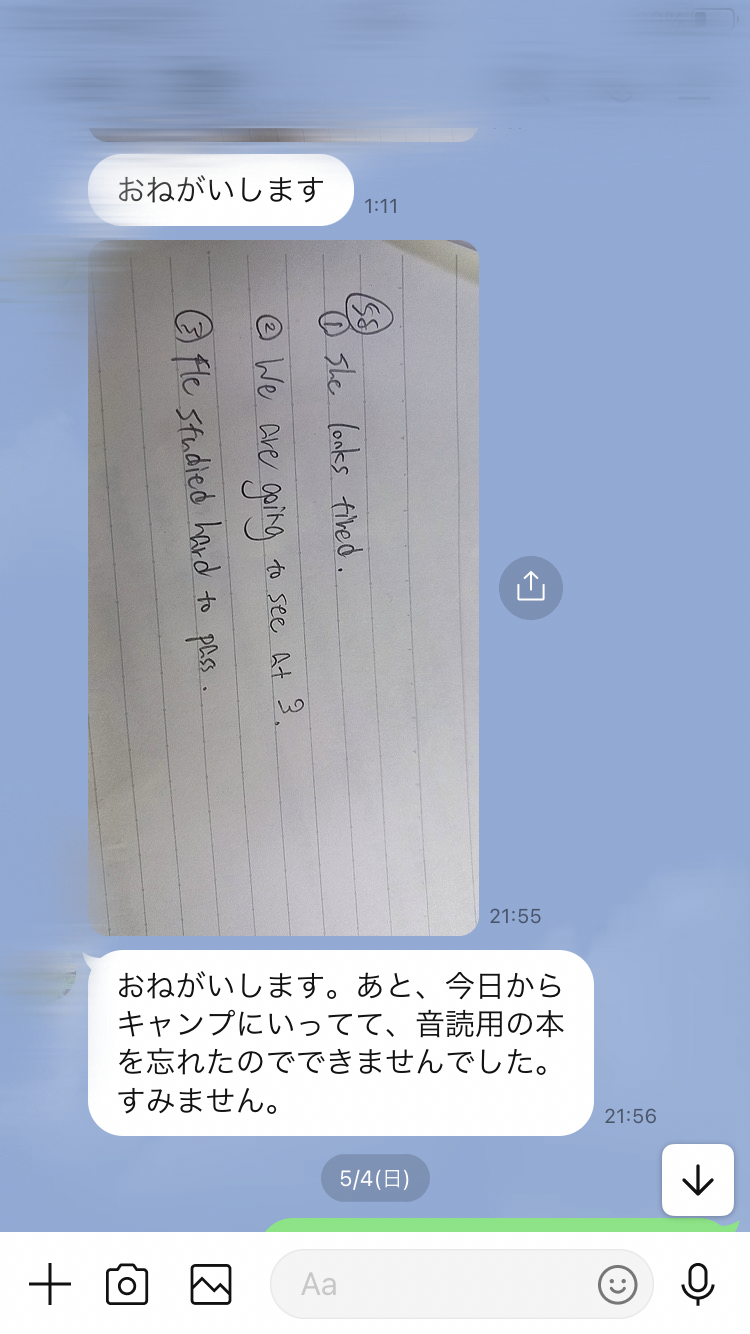 おねがいします
1:11
58
① She looks tired.
② We are going to see at 3.
③ He studied hard to pass.
21:55
おねがいします。あと、今日から
キャンプにいってて、音読用の本
を忘れたのでできませんでした。
すみません。
21:56
5/4(日)
Aa